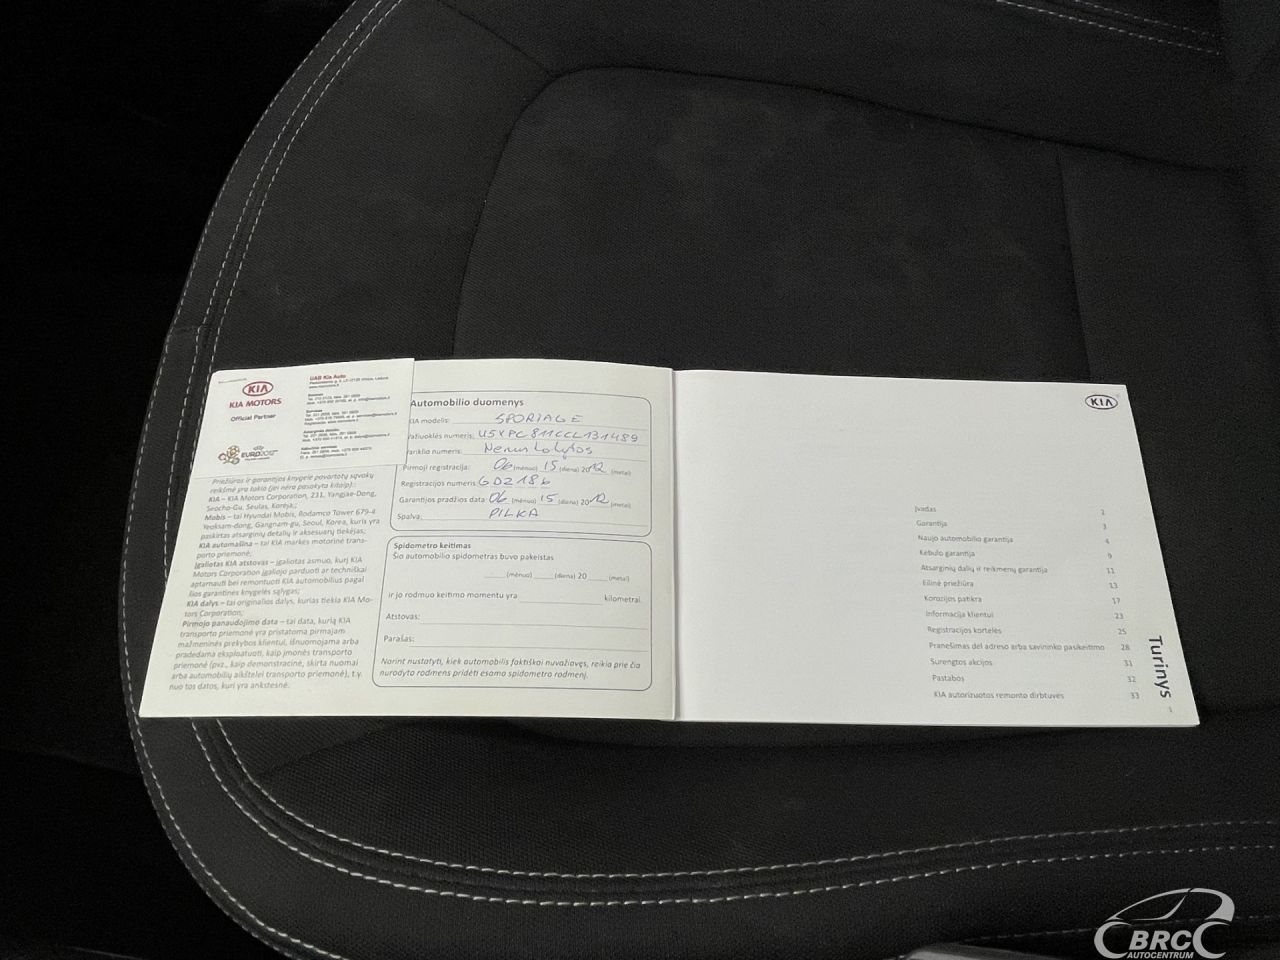 KIA
KIA MOTORS
Official Partner
UAB Kia Auto
EURO2012
Priežiūros ir garantijos knygelė pavartotų sąvokų
reikšmė yra tokia (jei nėra pasakyta kitaip):
KIA – KIA Motors Corporation, 231, Yangjae-Dong,
Seocho-Gu, Seulas, Korėja;
Mobis – tai Hyundai Mobis, Rodamco Tower 679-4
Yeoksam-dong, Gangnam-gu, Seoul, Korea, kuris yra
paskirtas atsarginių detalių ir aksesuarų tiekėjas;
KIA automašina – tai KIA markės motorinė trans-
porto priemonė;
Įgaliotas KIA atstovas – įgaliotas asmuo, kurį KIA
Motors Corporation įgaliojo parduoti ar techniškai
aptarnauti bei remontuoti KIA automobilius pagal
šios garantinės knygelės sąlygas;
KIA dalys – tai originalios dalys, kurias tiekia KIA Mo-
tors Corporation;
Pirmojo panaudojimo data – tai data, kurią KIA
transporto priemonė yra pristatoma pirmajam
mažmeninės prekybos klientui, išnuomojama arba
pradedama eksploatuoti, kaip įmonės transporto
priemonė (pvz., kaip demonstracinė, skirta nuomai
arba automobilių aikštelei transporto priemonė), t.y.
nuo tos datos, kuri yra ankstesnė.
Automobilio duomenys
KIA modelis: SPORTAGE
važiuoklės numeris: U5YPC811CCL131489
variklio numeris: Nenustatytas
Pirmoji registracija: 06 (mėnuo) 15 (diena) 2012 (metai)
Registracijos numeris: GDZ186
Garantijos pradžios data: 06 (mėnuo) 15 (diena) 2012 (metai)
Spalva: PILKA
Spidometro keitimas
Šio automobilio spidometras buvo pakeistas
(mėnuo) (diena) 20 (metai)
ir jo rodmuo keitimo momentu yra kilometrai.
Atstovas:
Parašas:
Norint nustatyti, kiek automobilis faktiškai nuvažiavęs, reikia prie čia
nurodyto rodmens pridėti esamo spidometro rodmenį.
KIA
Įvadas 2
Garantija 3
Naujo automobilio garantija 4
Kėbulo garantija 9
Atsarginių dalių ir reikmenų garantija 11
Eilinė priežiūra 13
Korozijos patikra 17
Informacija klientui 23
Registracijos kortelės 25
Pranešimas dėl adreso arba savininko pasikeitimo 28
Surengtos akcijos 31
Pastabos 32
KIA autorizuotos remonto dirbtuvės 33
Turinys
1
BRC
AUTOCENTRUM